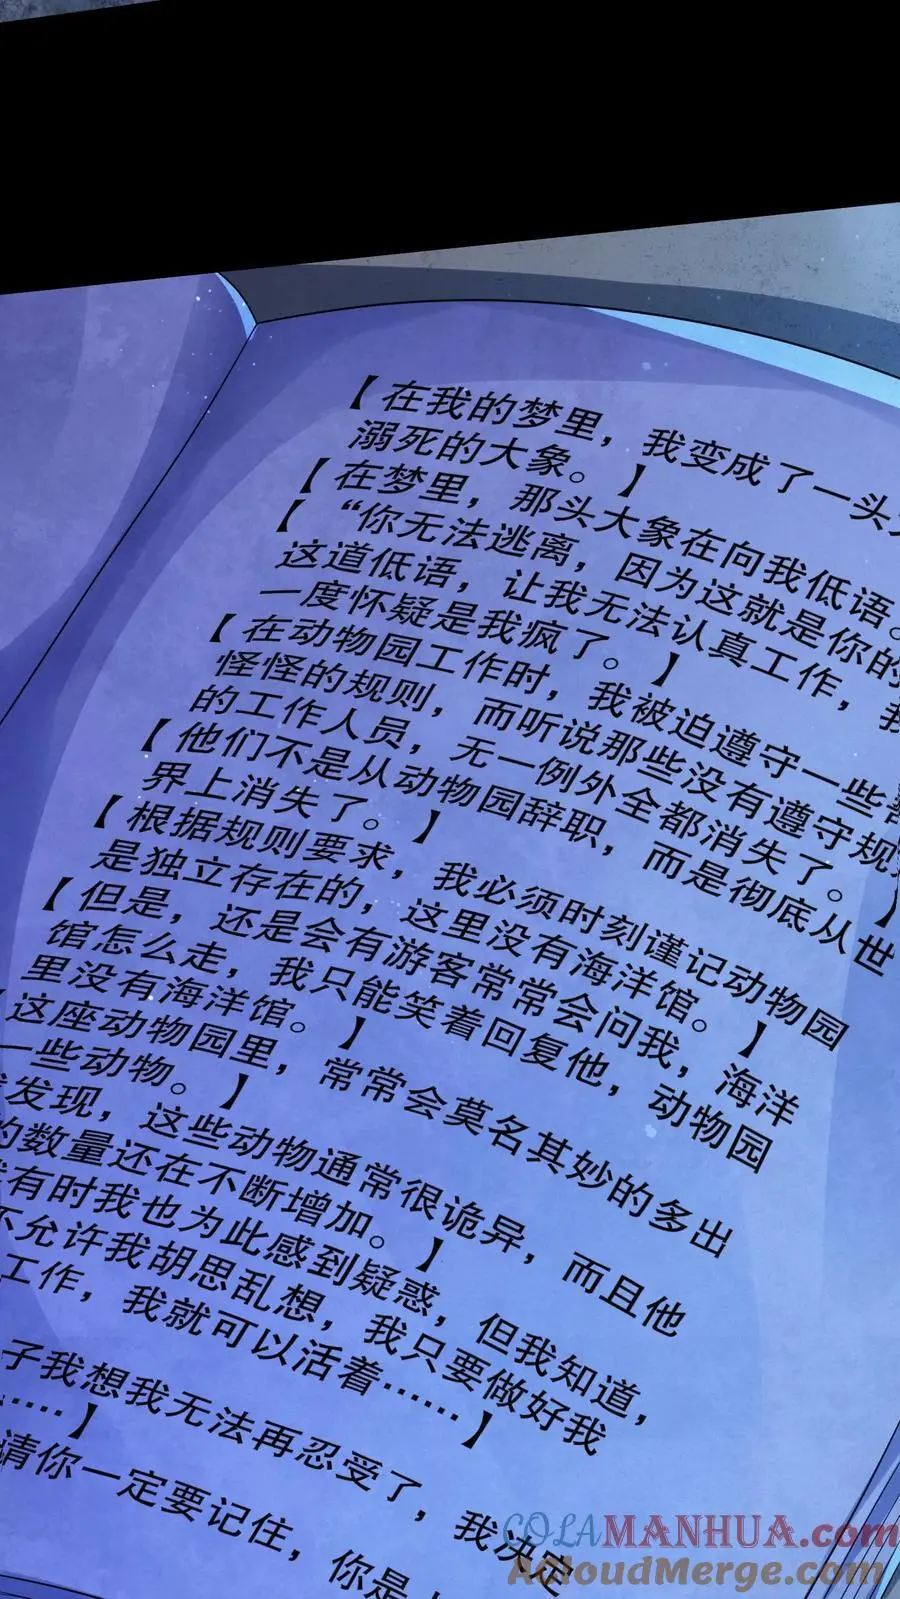 【在我的梦里，我变成了一头
溺死的大象。】
【在梦里，那头大象在向我低语。
【“你无法逃离，因为这就是你的
这道低语，让我无法认真工作，
一度怀疑是我疯了。】
【在动物园工作时，我被迫遵守一些
怪怪的规则，而听说那些没有遵守规
的工作人员，无一例外全都消失了。
【他们不是从动物园辞职，而是彻底从世
界上消失了。】
【根据规则要求，我必须时刻谨记动物园
是独立存在的，这里没有海洋馆。】
【但是，还是会有游客常常会问我，海洋
馆怎么走，我只能笑着回复他，动物园
里没有海洋馆。】
这座动物园里，常常会莫名其妙的多出
一些动物。】
发现，这些动物通常很诡异，而且他
的数量还在不断增加。】
有时我也为此感到疑惑，但我知道，
不允许我胡思乱想，我只要做好我
工作，我就可以活着……】
子我想我无法再忍受了，我决定
……】
请你一定要记住，你是
COLAMANHUA.com
AcloudMerge.com